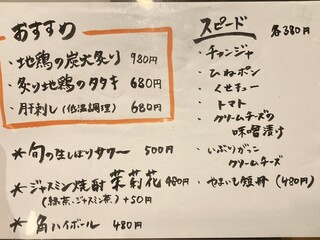 おすすめ
・地鶏の炭火炙り 980円
・炙り地鶏のタタキ 680円
・肝刺し(低温調理) 680円
★旬の生しぼりサワー 500円
★ジャスミン焼酎 茉莉花 480円
(緑茶、ジャスミン茶)+50円
★角ハイボール 480円
スピード 各380円
・チャンジャ
・ひねポン
・くせキュー
・トマト
・クリームチーズの
味噌漬け
・いぶりがっこ
クリームチーズ
・やまいも短冊 (480円)